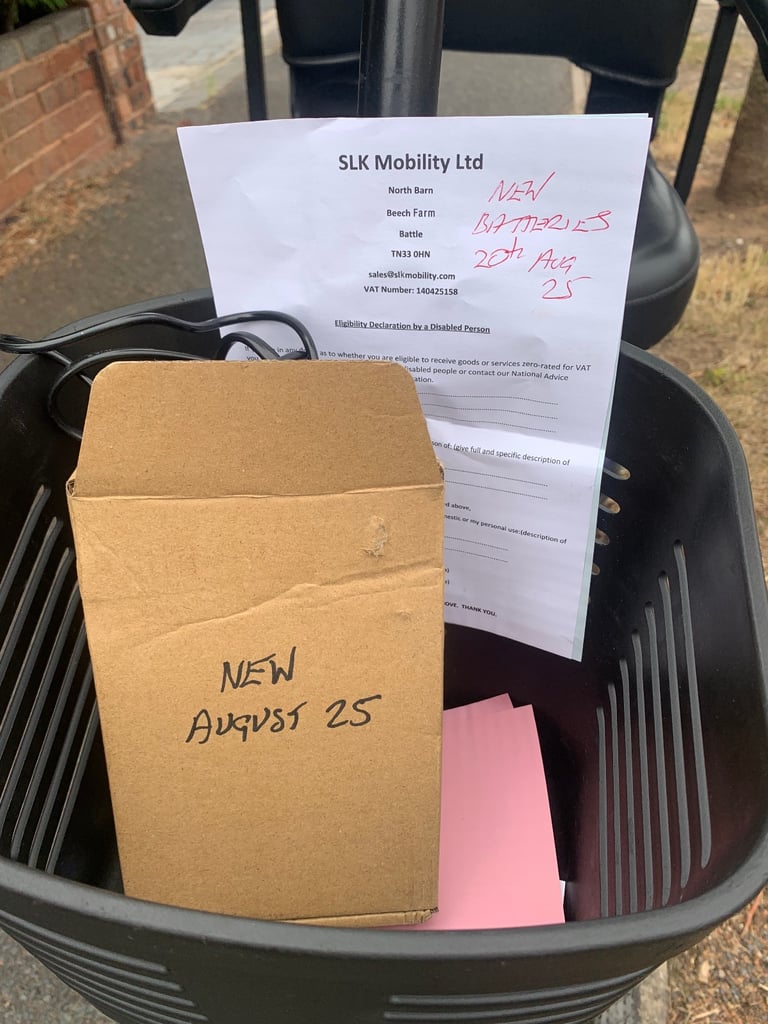 SLK Mobility Ltd
North Barn
Beech Farm
Battle
TN33 0HN
sales@slkmobility.com
VAT Number: 140425158
NEW
BATTERIES
20th AUG
25
Eligibility Declaration by a Disabled Person
in any as to whether you are eligible to receive goods or services zero-rated for VAT
isabled people or contact our National Advice
ation.
on of: (give full and specific description of
d above,
mestic or my personal use:(description of
OVE. THANK YOU.
NEW
AUGUST 25